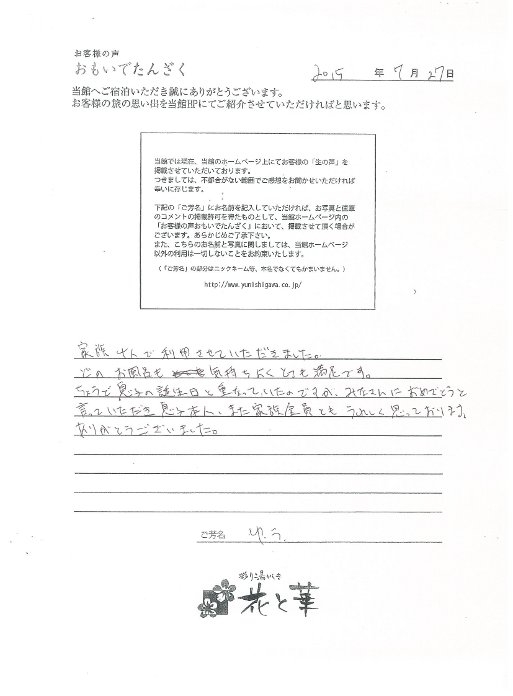 お客様の声
おもいでたんざく
2015 年 7 月 27 日
当館へご宿泊いただき誠にありがとうございます。
お客様の旅の思い出を当館HPにてご紹介させていただければと思います。
当館では現在、当館のホームページ上にてお客様の「生の声」を
掲載させていただいております。
つきましては、不都合がない範囲でご感想をお聞かせいただければ
幸いに存じます。
下記の「ご芳名」にお名前を記入していただければ、お写真と直筆
のコメントの掲載許可を得たものとして、当館ホームページ内の
「お客様の声おもいでたんざく」において、掲載させて頂く場合が
ございます。あらかじめご了承下さい。
また、こちらのお名前と写真に関しましては、当館ホームページ
以外の利用は一切しないことをお約束いたします。
（「ご芳名」の部分はニックネーム等、本名でなくてもかまいません。）
http://www.yunishigawa.co.jp/
家族4人で利用させていただきました。
どの お風呂も 気持ちよく とても 満足です。
ちょうど息子の誕生日と重なっていたのですが、みなさんにおめでとうと
言っていただき 息子本人、また家族全員とも うれしく思っております。
ありがとうございました。
ご芳名 ゆう
彩り湯かしき
花と華